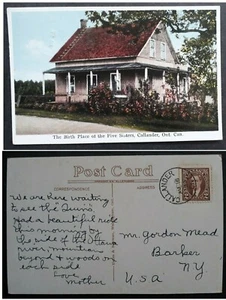 The Birth Place of the Five Sisters, Callander, Ont. Can.
Post Card
CORRESPONDENCE
ADDRESS
CALLANDER
We are here waiting
to see the Quins.
Had a beautiful ride
this morning by
the side of the Ottawa
river, mountains
beyond & woods on
each side
Love
Mother
Mr. Gordon Mead
Barker
N.Y.
U.S.A